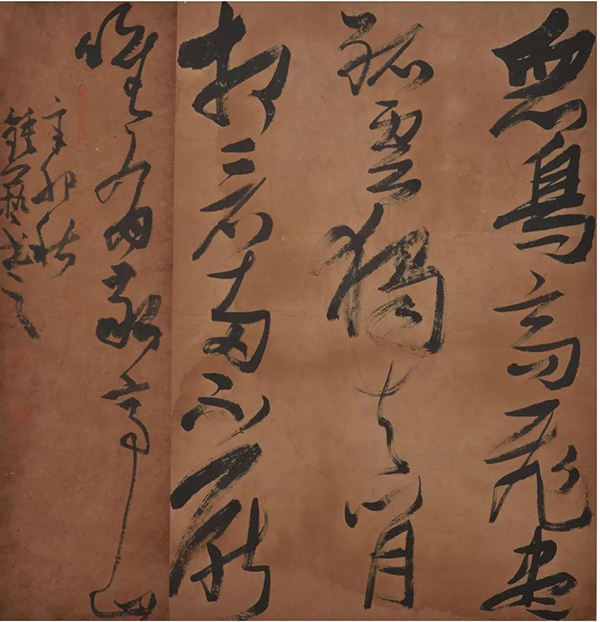 眾鳥高飛盡
孤雲獨去閒
相看兩不厭
唯有敬亭山
辛卯秋
鍾藝書之